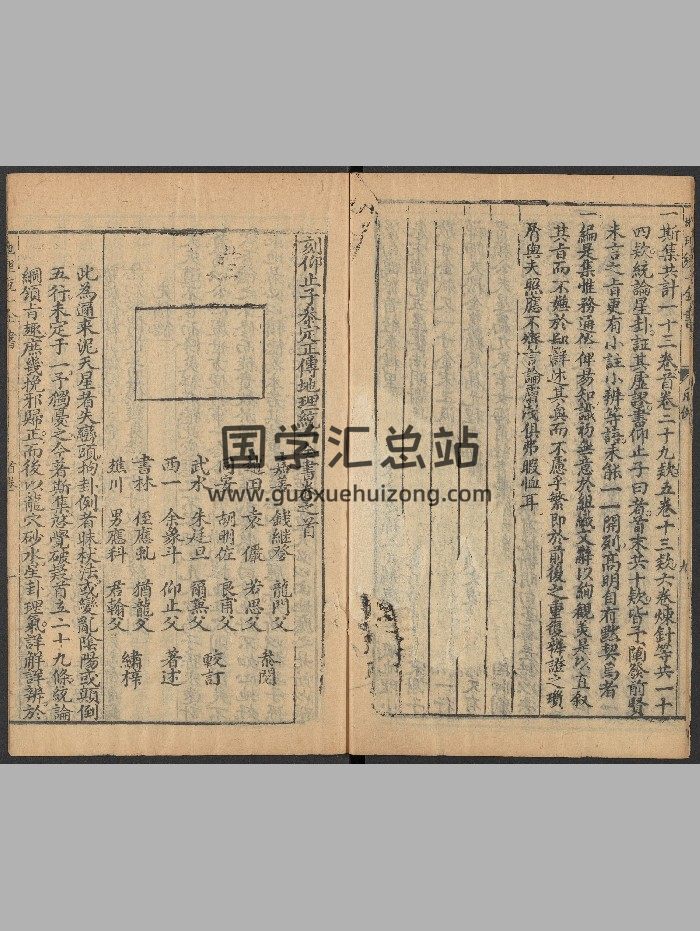 一斯集共計一十三卷首卷二十九款五卷十三款六卷煉針等共一十
四款統論星卦証其虛謬書仰止子曰者首末共十款皆予闡發前賢
未言之旨更有小註小辨等語未能一一開列高明自有默契焉者
一編是集惟務通俗俾易知識初無意於組織文辭以絢觀美是以直叙
其旨而不嫌於詳述其奧而不慮乎繁即於前後之重復辯證之瑣
屑與夫照應不齊言論淺俱弗暇恤耳
刻仰止子參定正傳地理統一全書卷之首
嘉善 錢繼登 龍門父
袁儼 若思父 叅閱
同安 胡明佐 良甫父
武水 朱廷旦 爾兼父 較訂
西一 余象斗 仰止父 著述
書林 侄應虬 猶龍父
樵川 男應科 君翰父 繡梓
此為邇來泥天星者失巒頭拘卦倒者昧杖法或變亂陰陽或顛倒
五行未定于一予獨憂之今著斯集啟覺破疑首立二十九條統論
綱領旨趣庶幾挽邪歸正而後以龍穴砂水星卦理氣詳解詳辨於
国学汇总站
www.guoxuehuizong.com